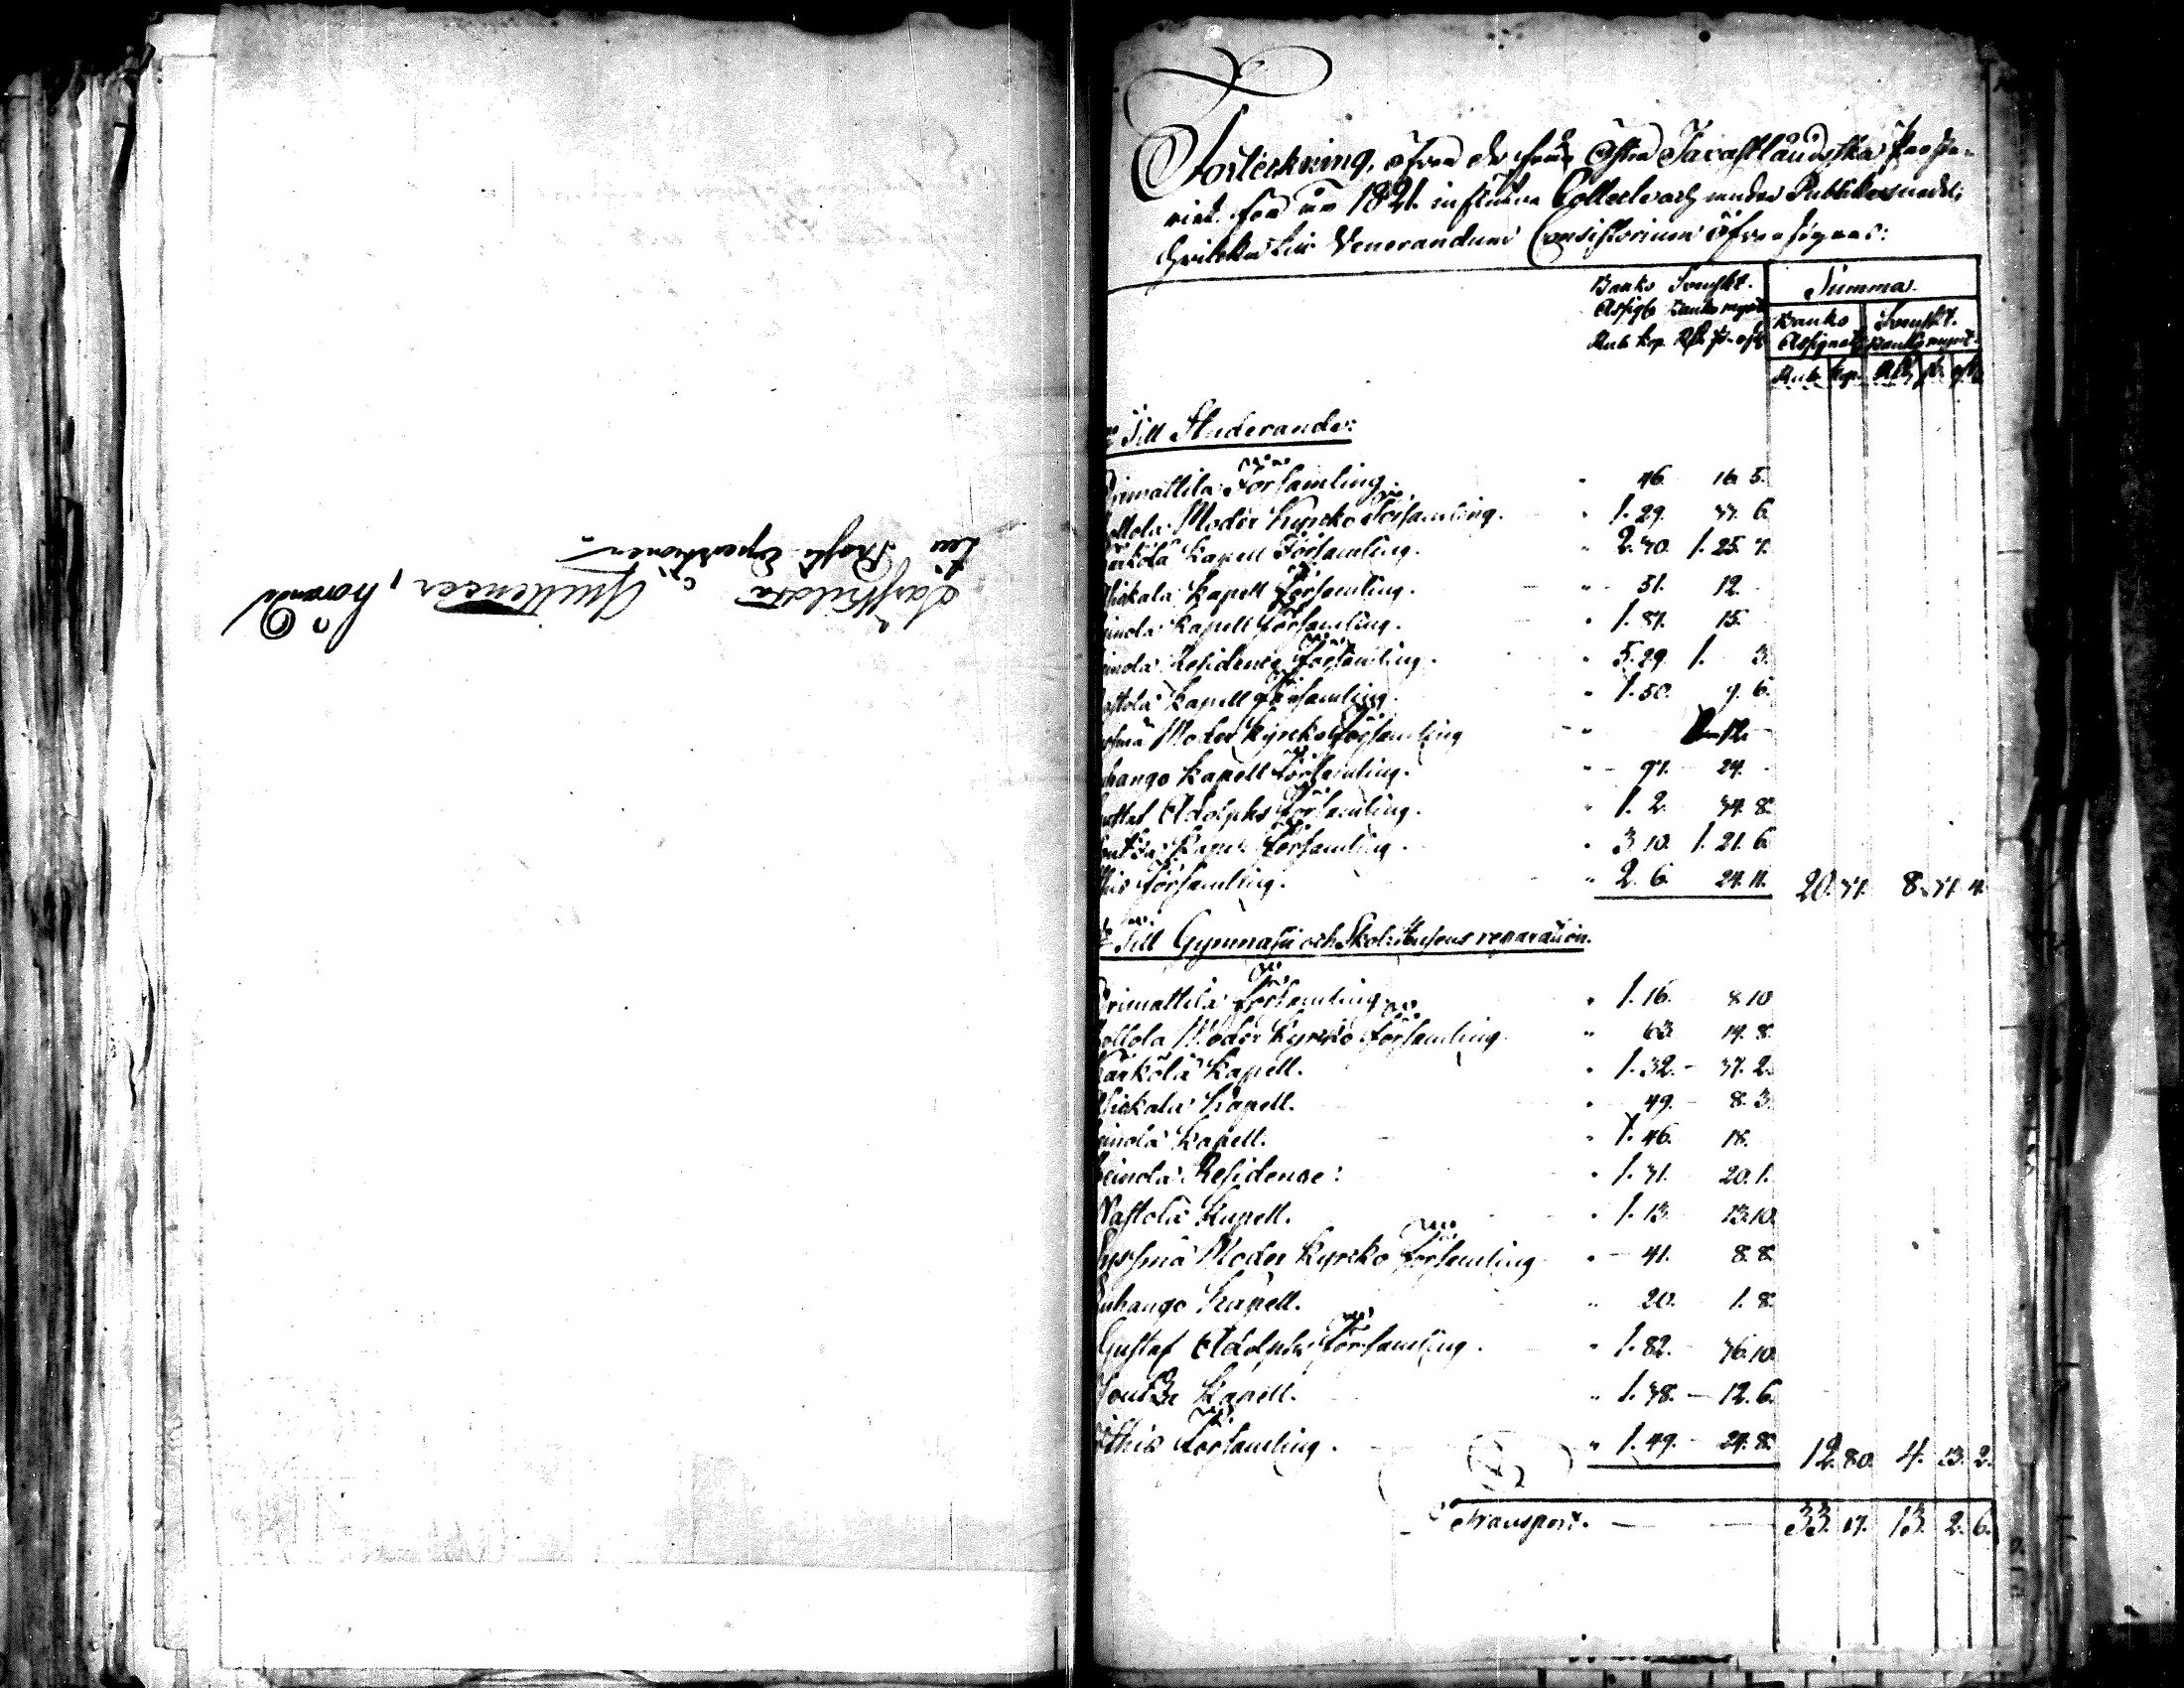 Särskilda Qvittencer, hörande
till Prosts Expeditionen
Förteckning, öfver de från Östra Tavastlandska Proste-
riet för år 1821 influtna Collect och andra Publika medel,
hvilka till Venerandum Consistorium öfversändas:
Banko Svenskt. Summa.
Assig: Banko mynt Banko Svenskt.
Rub. kop. Rdr sk. rst. Assignat: Banko mynt.
Rub. kop. Rdr sk. rst.
Till Studerande:
Orimattila Församling. 46. 16. 5.
Hollola Moder Kyrko Församling. 1. 29. 37. 6.
Kärkölä Kapell Församling. 2. 70. 1. 25. 7.
Asikala Kapell Församling. 51. 12.
Heinola Kapell Församling. 1. 87. 15.
Heinola Residence Församling. 5. 29. 1. 3.
Nastola Kapell Församling. 1. 50. 9. 6.
Sysmä Moder Kyrko Församling 12.
Luhango Kapell Församling. 97. 24.
Gustaf Adolphs Församling. 1. 2. 34. 8.
Joutza Kapell Församling. 3. 10. 1. 21. 6.
Ithis Församling. 2. 6. 24. 11. 20. 37. 8. 37. 4.
Till Gymnasii och Skolehusens reparation.
Orimattila Församling 1. 16. 8. 10.
Hollola Moder Kyrko Församling 63. 14. 8.
Kärkölä Kapell. 1. 32. 37. 2.
Asikala Kapell. 49. 8. 3.
Heinola Kapell. 1. 46. 18.
Heinola Residence: 1. 71. 20. 1.
Nastola Kapell. 1. 13. 13. 10.
Sysmä Moder Kyrko Församling 41. 8. 8.
Luhango Kapell. 20. 1. 8.
Gustaf Adolphs Församling. 1. 82. 36. 10.
Joutza Kapell. 1. 38. 12. 6.
Ithis Församling. 1. 49. 24. 8. 12. 80. 4. 13. 2.
Transport. 33. 17. 13. 2. 6.